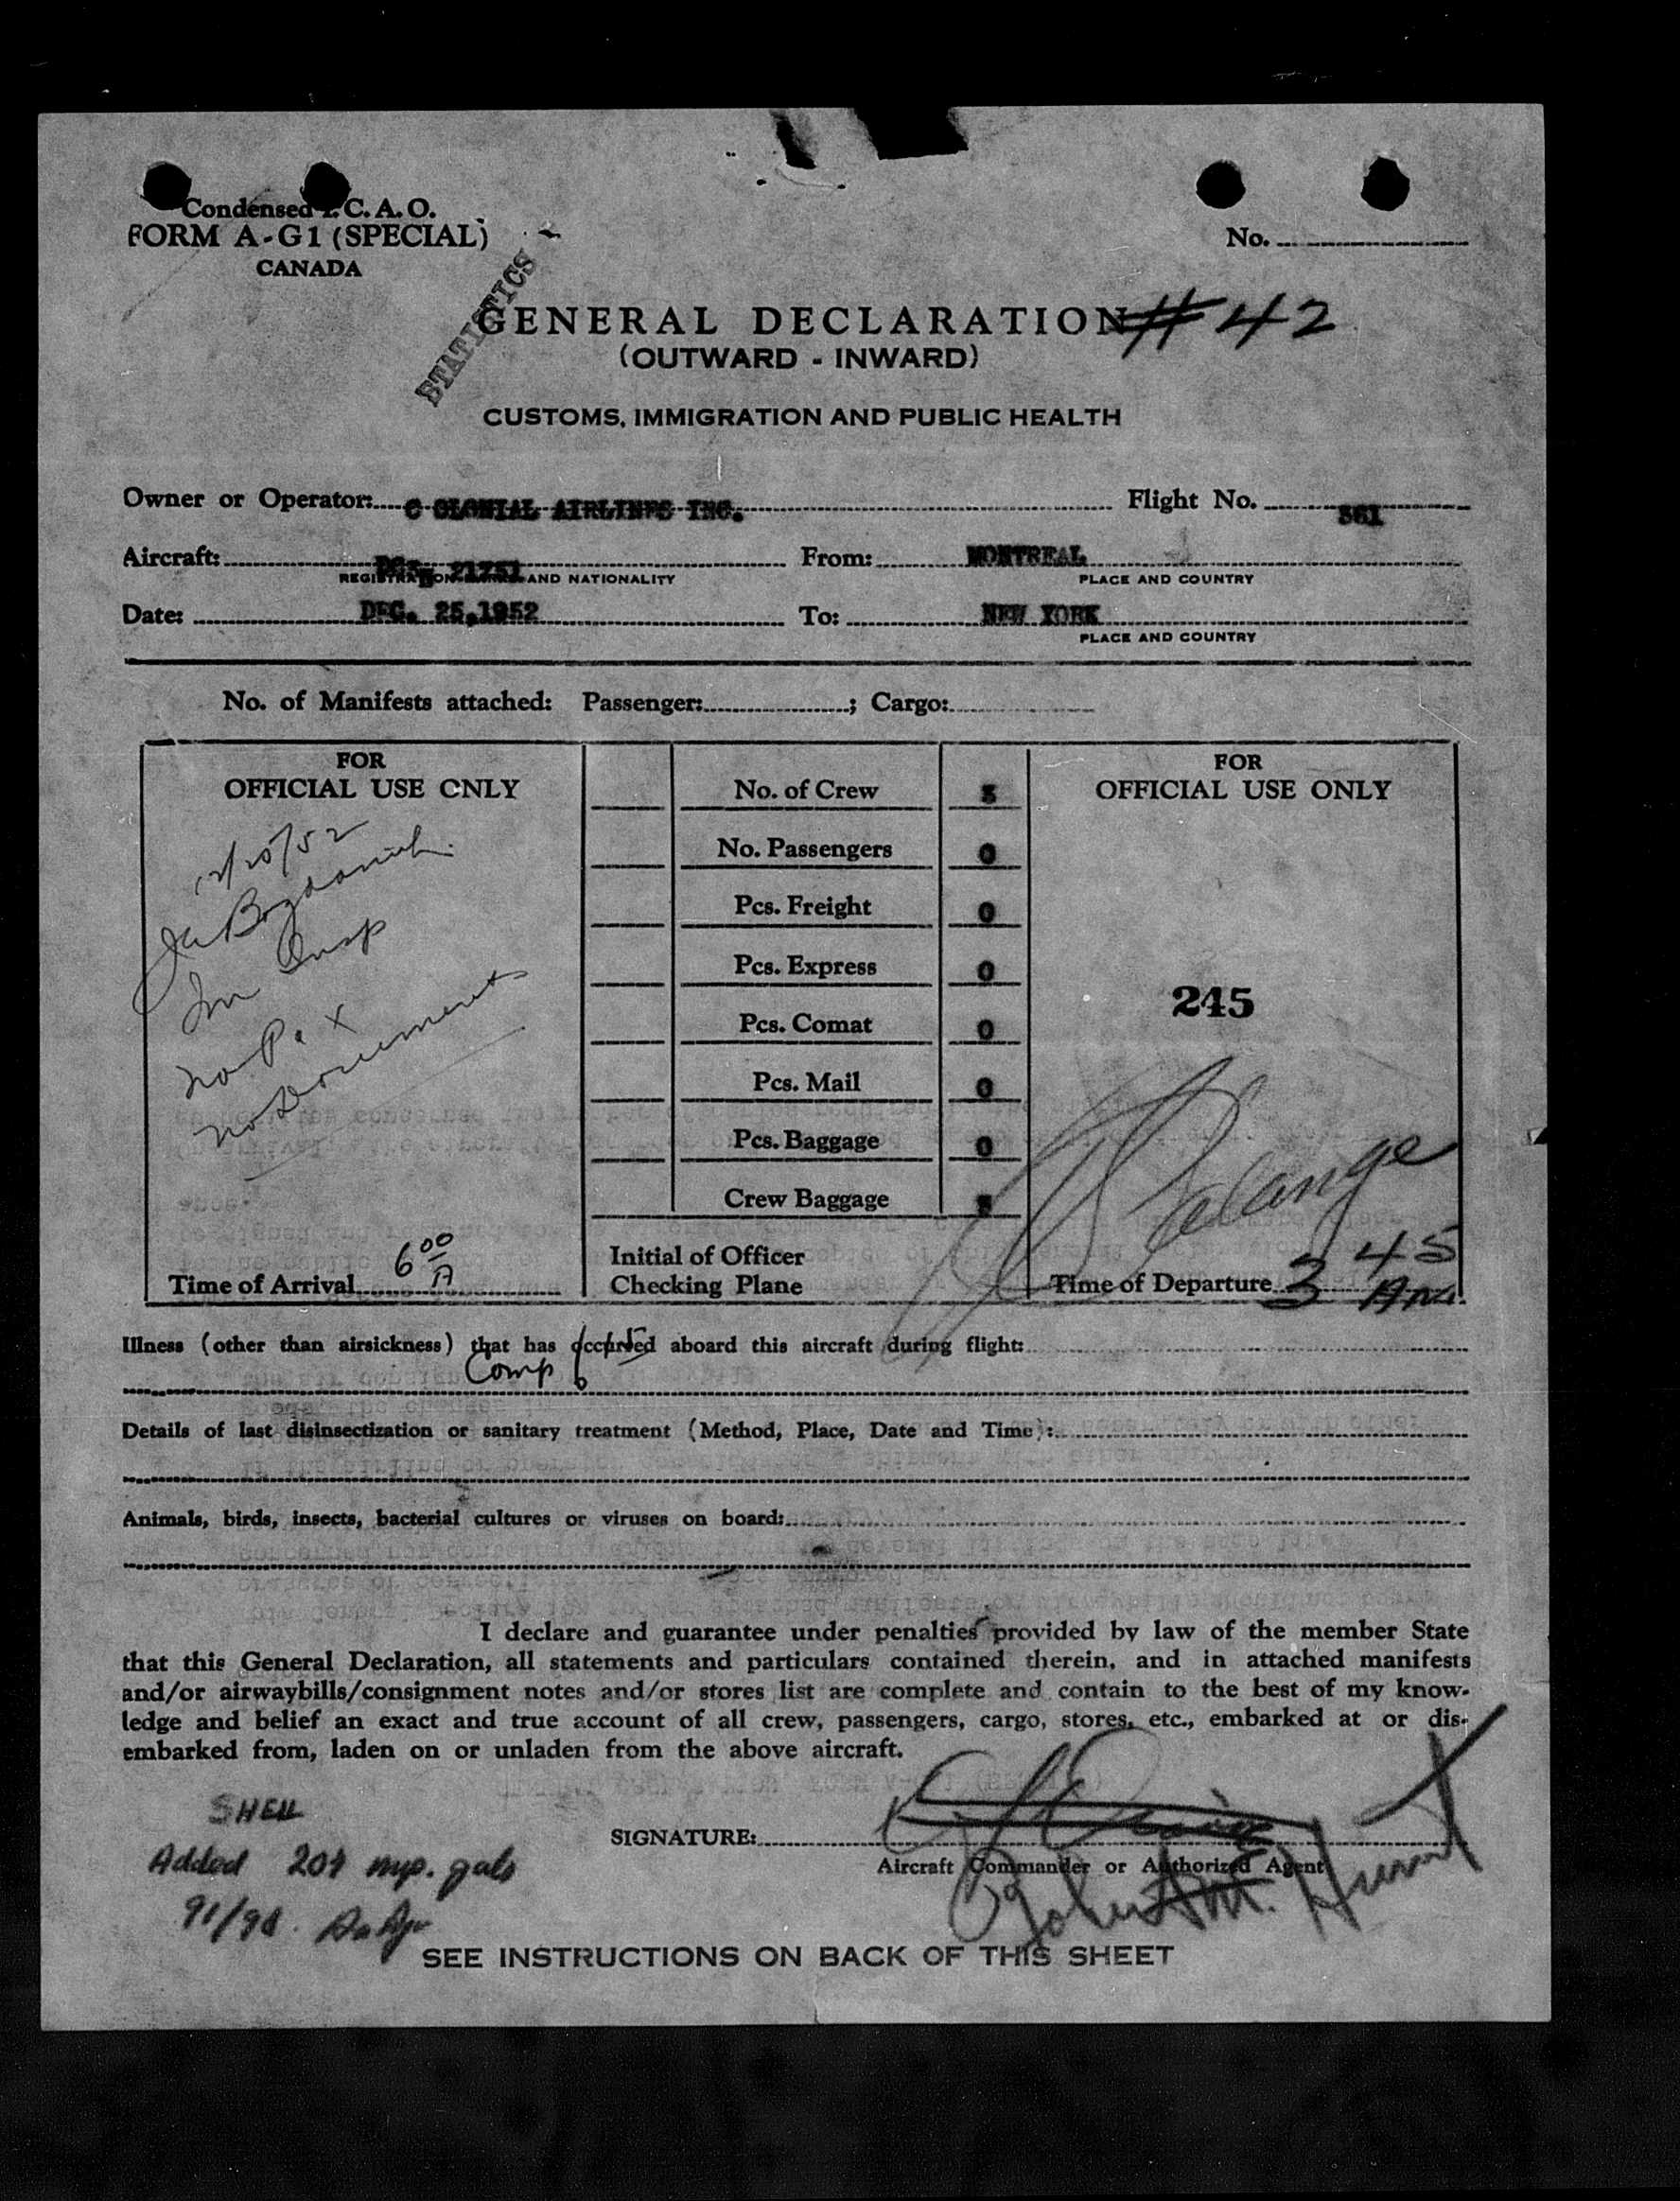 Condensed I. C. A. O.
FORM A-G1 (SPECIAL)
CANADA
No.
STATISTICS
GENERAL DECLARATION # 42
(OUTWARD - INWARD)
CUSTOMS, IMMIGRATION AND PUBLIC HEALTH
Owner or Operator: C OLONIAL AIRLINES INC. Flight No. 861
Aircraft: From: MONTREAL
REGISTRATION MARKS AND NATIONALITY PLACE AND COUNTRY
Date: DEC. 25,1952 To: NEW YORK
PLACE AND COUNTRY
No. of Manifests attached: Passenger: ; Cargo:
FOR
OFFICIAL USE ONLY
12/25/52
Im Insp
No Pax
no Documents
Time of Arrival 6 00 A
No. of Crew
No. Passengers 0
Pcs. Freight 0
Pcs. Express 0
Pcs. Comat 0
Pcs. Mail 0
Pcs. Baggage 0
Crew Baggage
Initial of Officer
Checking Plane
FOR
OFFICIAL USE ONLY
245
Time of Departure 3 45 AM.
Illness (other than airsickness) that has occurred aboard this aircraft during flight:
Comp
Details of last disinsectization or sanitary treatment (Method, Place, Date and Time):
Animals, birds, insects, bacterial cultures or viruses on board:
I declare and guarantee under penalties provided by law of the member State
that this General Declaration, all statements and particulars contained therein, and in attached manifests
and/or airwaybills/consignment notes and/or stores list are complete and contain to the best of my know-
ledge and belief an exact and true account of all crew, passengers, cargo, stores, etc., embarked at or dis-
embarked from, laden on or unladen from the above aircraft.
SHELL
Added 204 imp. gals
91/98.
SIGNATURE:
Aircraft Commander or Authorized Agent
Robert M. Hunt
SEE INSTRUCTIONS ON BACK OF THIS SHEET